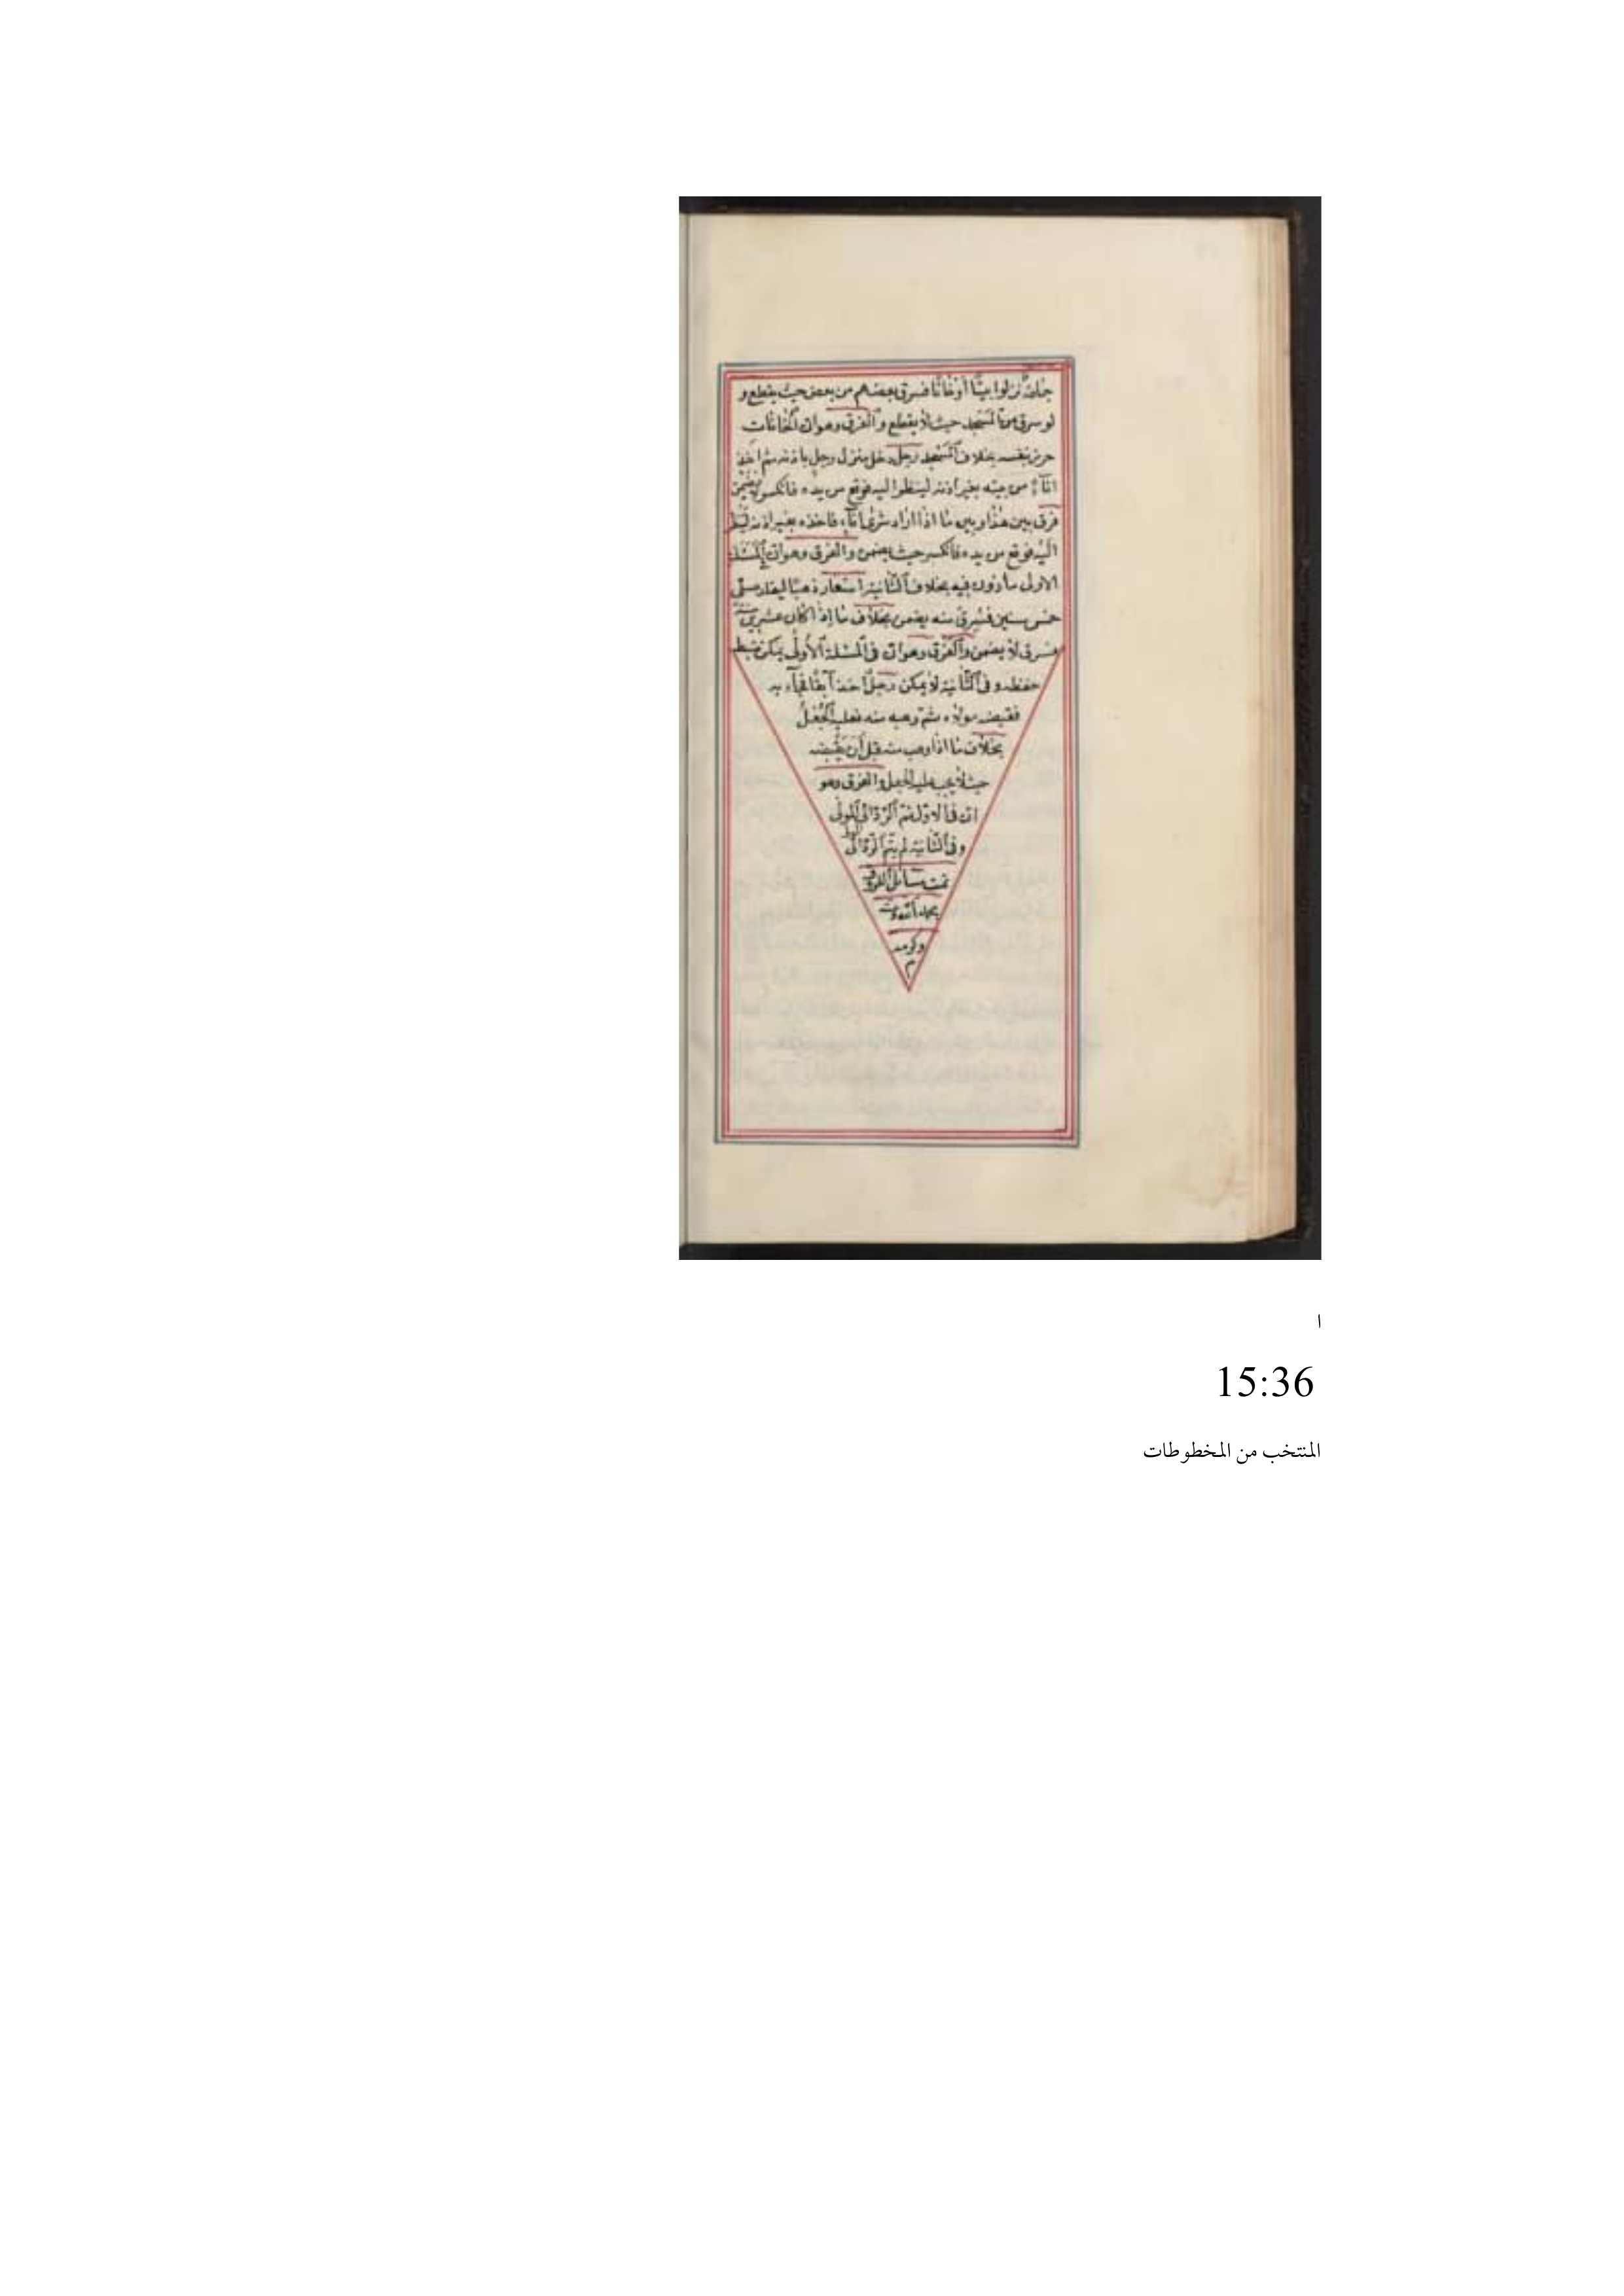 جماعة نزلوا بيتًا أو خانًا فسرق بعضهم من بعض حيث يقطع و
لو سرق من المسجد حيث لا يقطع والفرق وهو ان الخانات
حرز بنفسه بخلاف المسجد رجل دخل منزل رجل باذنه ثم اخذ
اناء من بيته بغير اذنه لينظر اليه فوقع من يده فانكسر لا يضمن
فرق بين هذا وبين ما اذا اراد شرى اناء فاخذه بغير اذنه لينظر
اليه فوقع من يده فانكسر حيث يضمن والفرق وهو ان المسئلة
الاولى مأذون فيه بخلاف الثانية استعار ذهبًا ليقلد صبي
خمس سنين فسرق منه يضمن بخلاف ما إذا كان عشرين سنة
فسرق لا يضمن والفرق وهو ان في المسئلة الأولى يمكن ضبط
حفظه وفي الثانية لا يمكن رجل اخذ آبقا فجاء به
فقبضه مولاه ثم وهبه منه فعليه الجُعْلُ
بخلاف ما اذا وهب منه قبل أن يقبضه
حيث لا يجب عليه الجعل والفرق وهو
ان في الاول تم الرد الى المولى
وفي الثانية لم يتم الرد الى المولى
تمت مسائل الفروق
بحمد الله
وكرمه
م
ا
15:36
المنتخب من المخطوطات